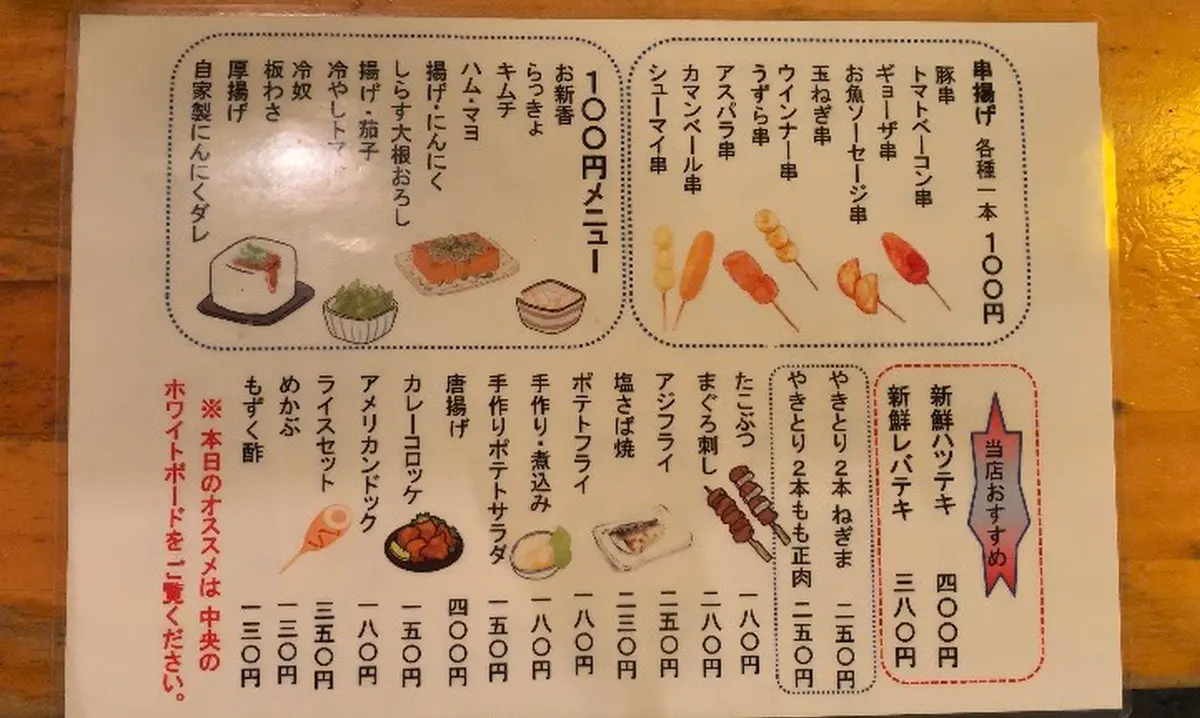 串揚げ 各種一本 100円
豚串
トマトベーコン串
ギョーザ串
お魚ソーセージ串
玉ねぎ串
ウインナー串
うずら串
アスパラ串
カマンベール串
シューマイ串
100円メニュー
お新香
らっきょ
キムチ
ハム・マヨ
揚げ・にんにく
しらす大根おろし
揚げ・茄子
冷やしトマ
冷奴
板わさ
厚揚げ
自家製にんにくダレ
当店おすすめ
新鮮ハツテキ 四〇〇円
新鮮レバテキ 三八〇円
やきとり2本 ねぎま 二五〇円
やきとり2本もも正肉 二五〇円
たこぶつ 一八〇円
まぐろ刺し 二八〇円
アジフライ 二五〇円
塩さば焼 二三〇円
ポテトフライ 一八〇円
手作り・煮込み 一八〇円
手作りポテトサラダ 一五〇円
唐揚げ 四〇〇円
カレーコロッケ 一五〇円
アメリカンドック 一八〇円
ライスセット 三五〇円
めかぶ 一三〇円
もずく酢 一三〇円
※ 本日のオススメは 中央の
ホワイトボードをご覧ください。